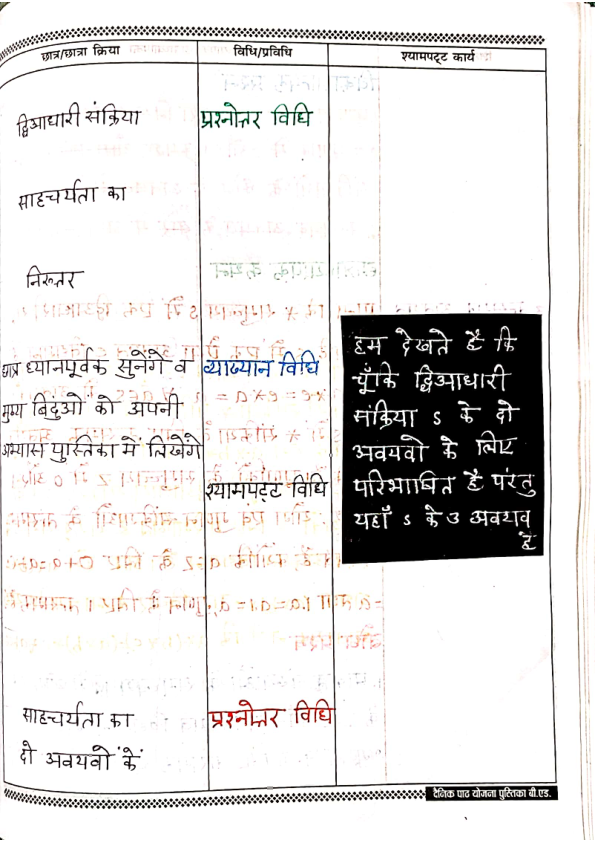 छात्र/छात्रा क्रिया
विधि/प्रविधि
श्यामपट्ट कार्य
द्विआधारी संक्रिया
प्रश्नोत्तर विधि
साहचर्यता का
निरूत्तर
छात्र ध्यानपूर्वक सुनेंगे व
मुख्य बिंदुओं को अपनी
अभ्यास पुस्तिका में लिखेंगे
व्याख्यान विधि
श्यामपट्ट विधि
हम देखते है कि
चूँकि द्विआधारी
संक्रिया s के दो
अवयवो के लिए
परिभाषित है परंतु
यहाँ s के 3 अवयव
है
साहचर्यता का
प्रश्नोत्तर विधि
दो अवयवों कें
दैनिक पाठ योजना पुस्तिका बी.एड.